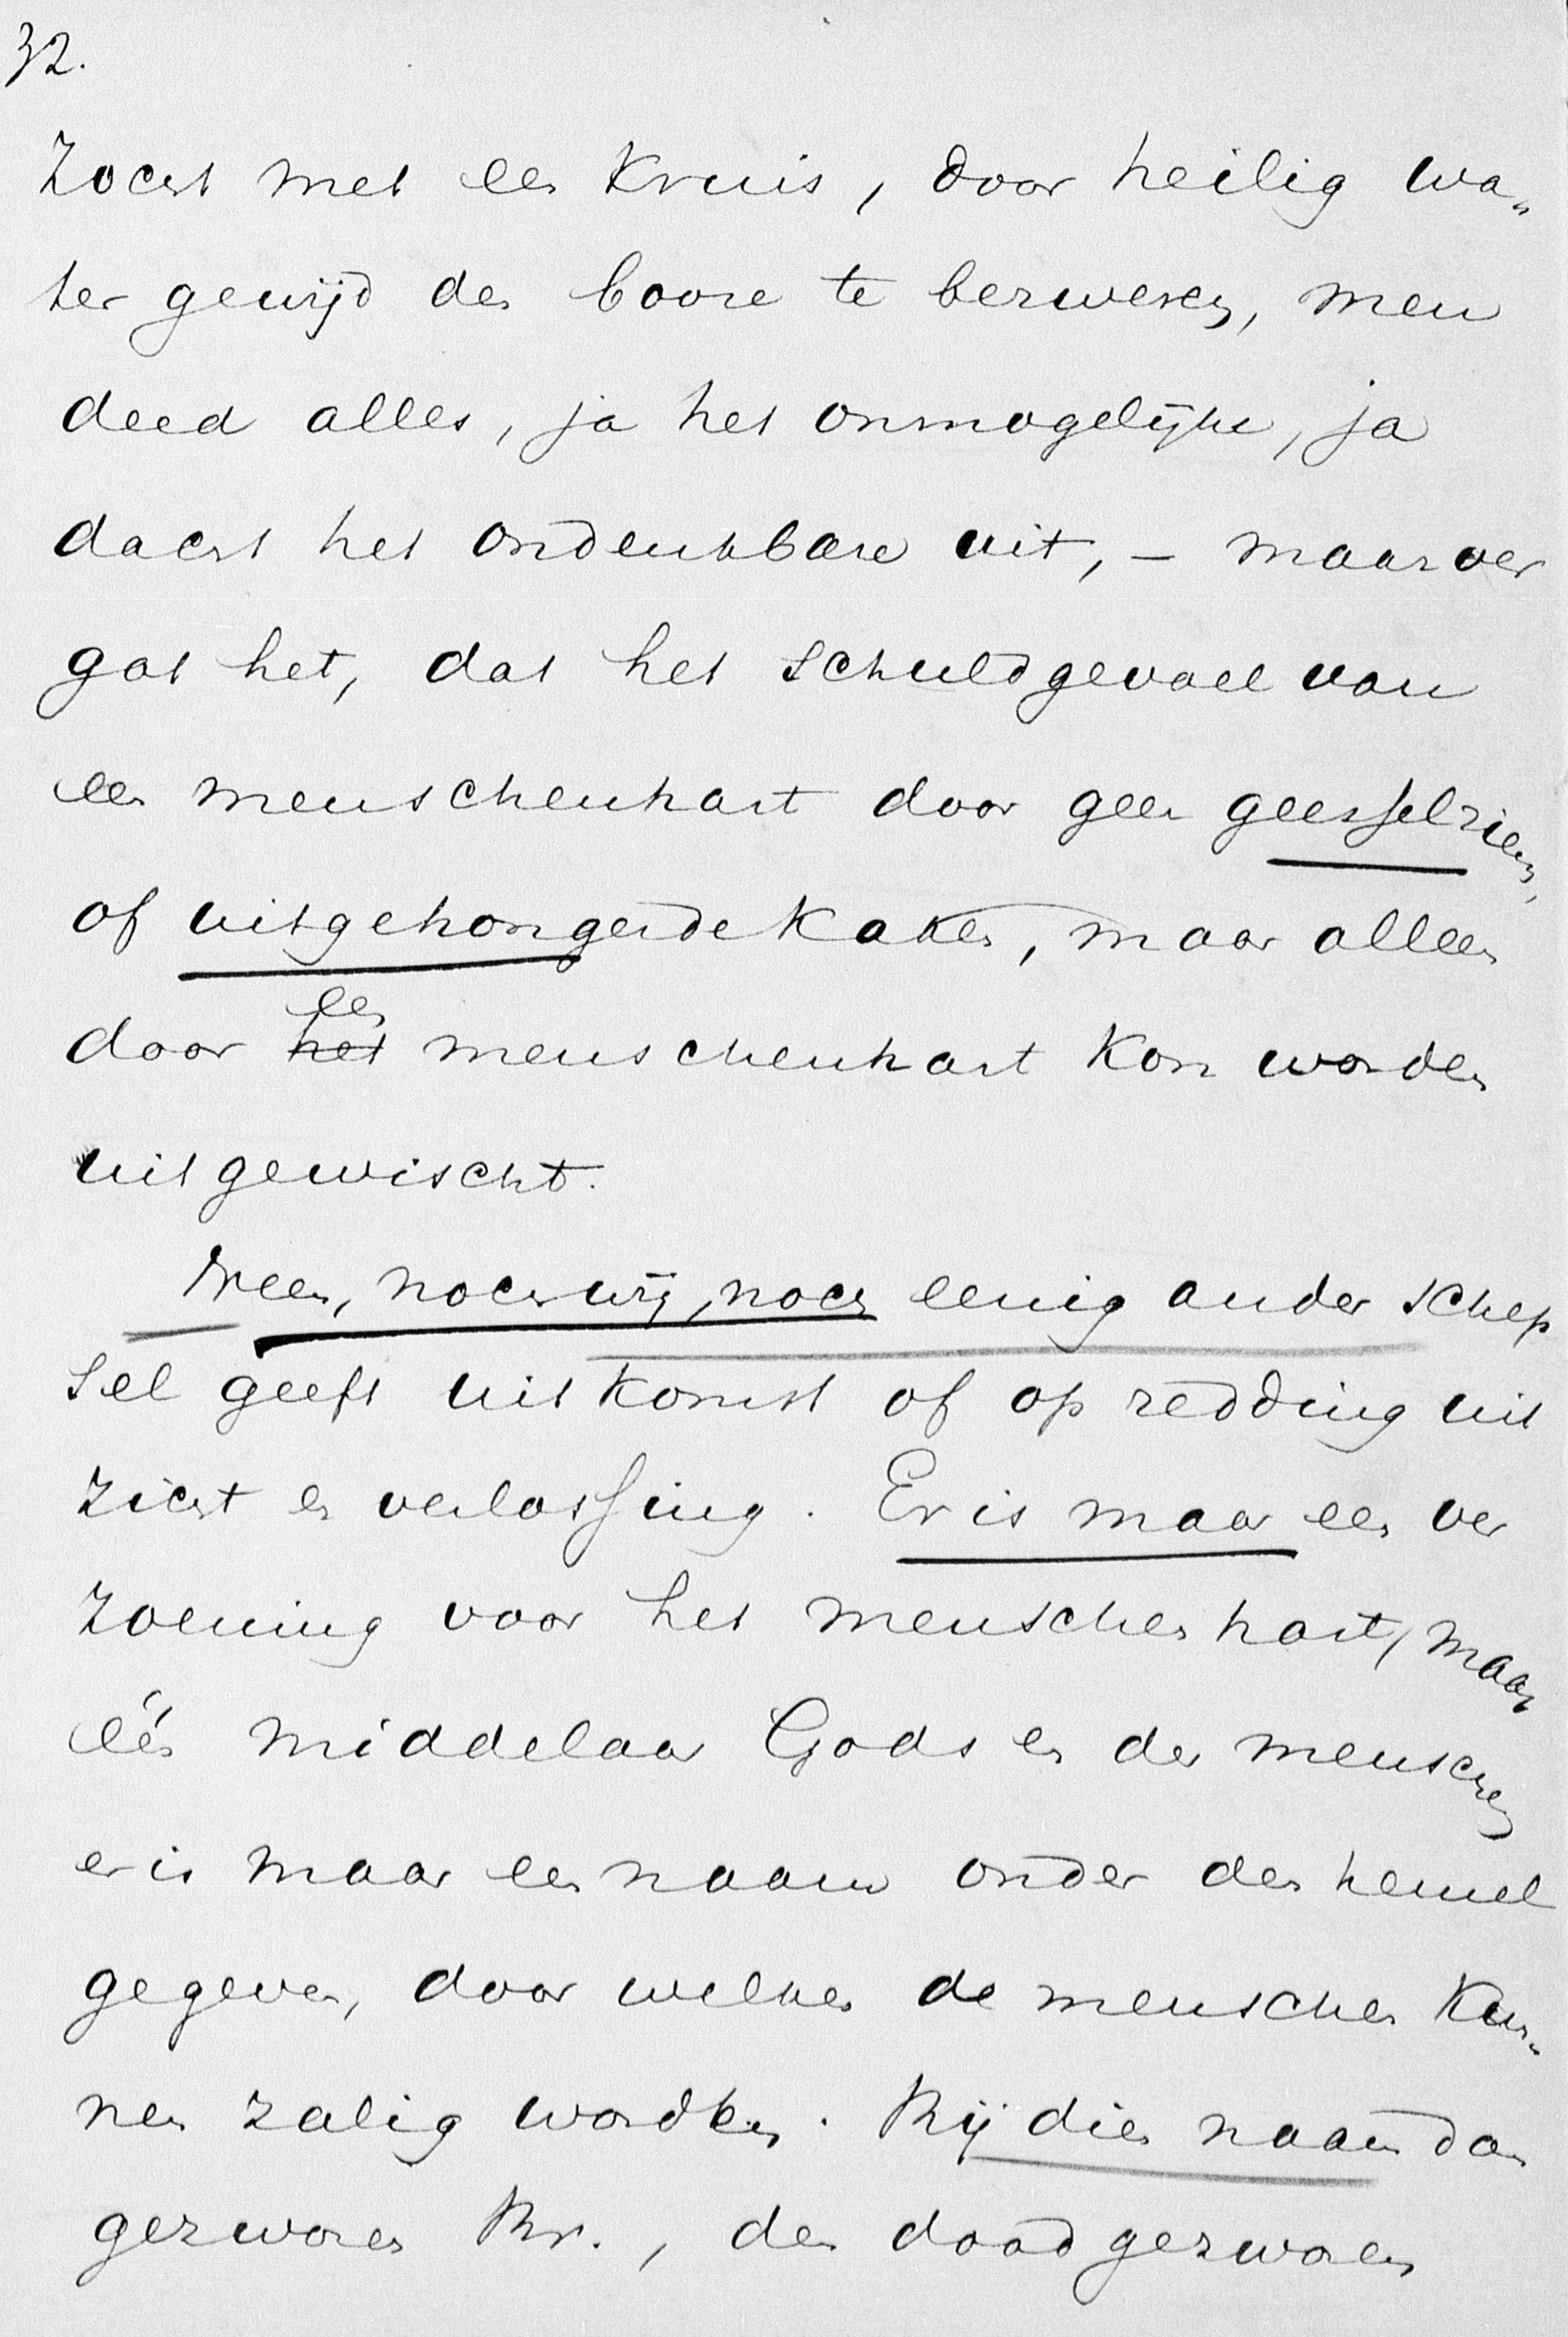 32.
zocht met een kruis, door heilig wa„
ter gewijd den booze te bezweren, men
deed alles, ja het onmogelijke, ja
dacht het ondenkbare uit, – maar ver
gat het, dat het schuldgevoel van
een menschenhart door geen geesselriem,
of uitgehongerde kaken, maar alleen
een
door het menschenhart kon worden
uitgewischt.
Neen, noch wij, noch eenig ander schep
sel geeft uitkomst of op redding uit
zicht en verlossing. Er is maar een ver
zoening voor het menschenhart, maar
één middelaar Gods en der menschen
er is maar een naam onder den hemel
gegeven, door welken de menschen kun„
nen zalig worden. Bij dien naam dan
gezworen Br., den dood gezworen